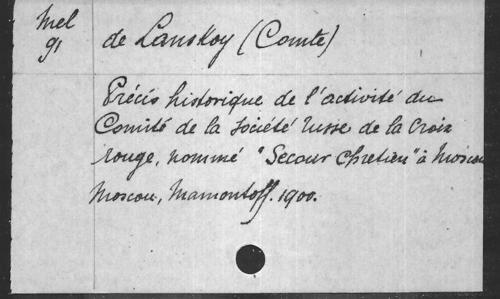 Mel
91
de Lanskoy (Comte)
Précis historique de l'activité du
Comité de la Société russe de la Croix
rouge, nommé "Secour chretien" à Moscou
Moscou, Mamontoff. 1900.